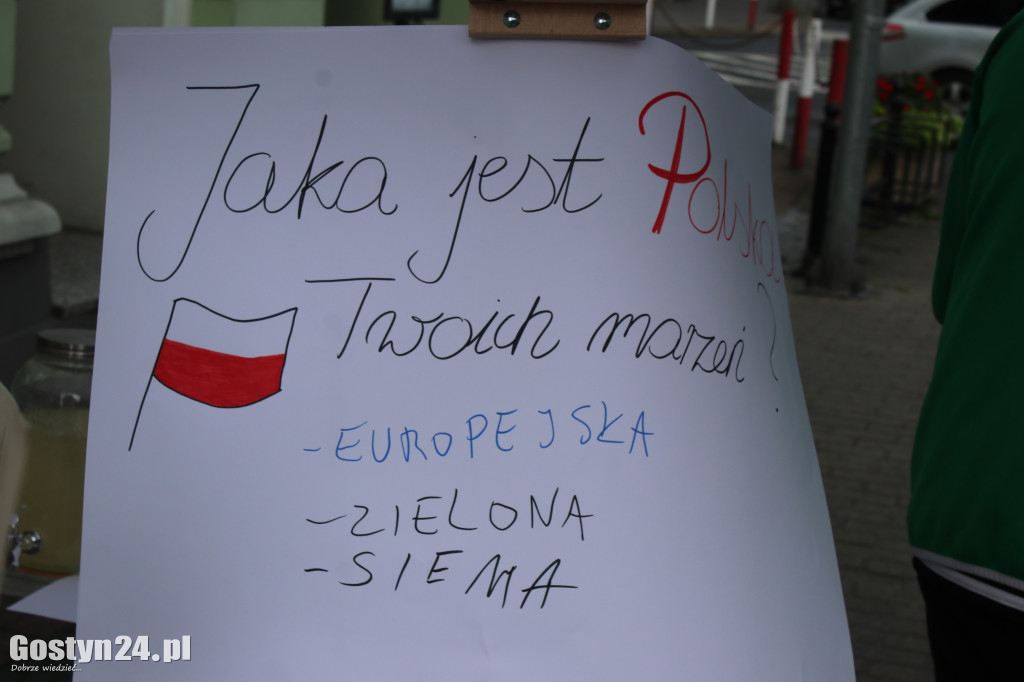 Jaka jest Polska
Twoich marzeń?
- EUROPEJSKA
- ZIELONA
- SIEMA
Gostyn24.pl
Dobrze wiedzieć...